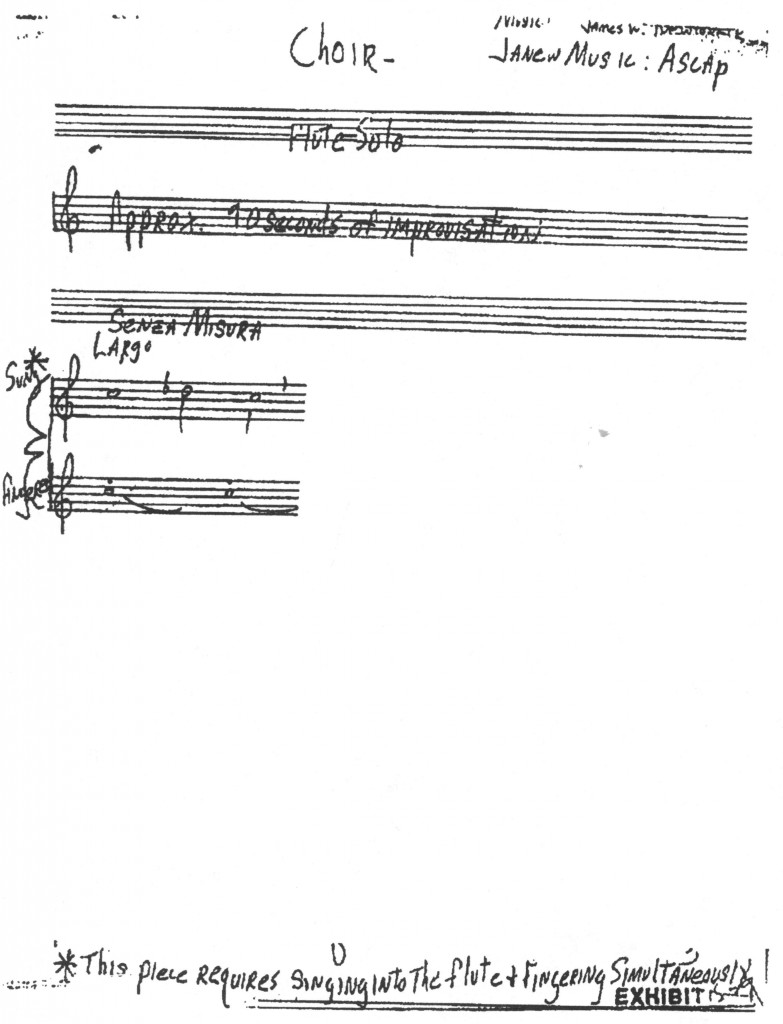 Music: James W.
Choir-
Janew Music: Ascap
Flute Solo
Approx. 90 seconds of improvisation;
Senza Misura
Largo
Sung *
Fingered
* This piece requires singing into the flute & fingering simultaneously
EXHIBIT